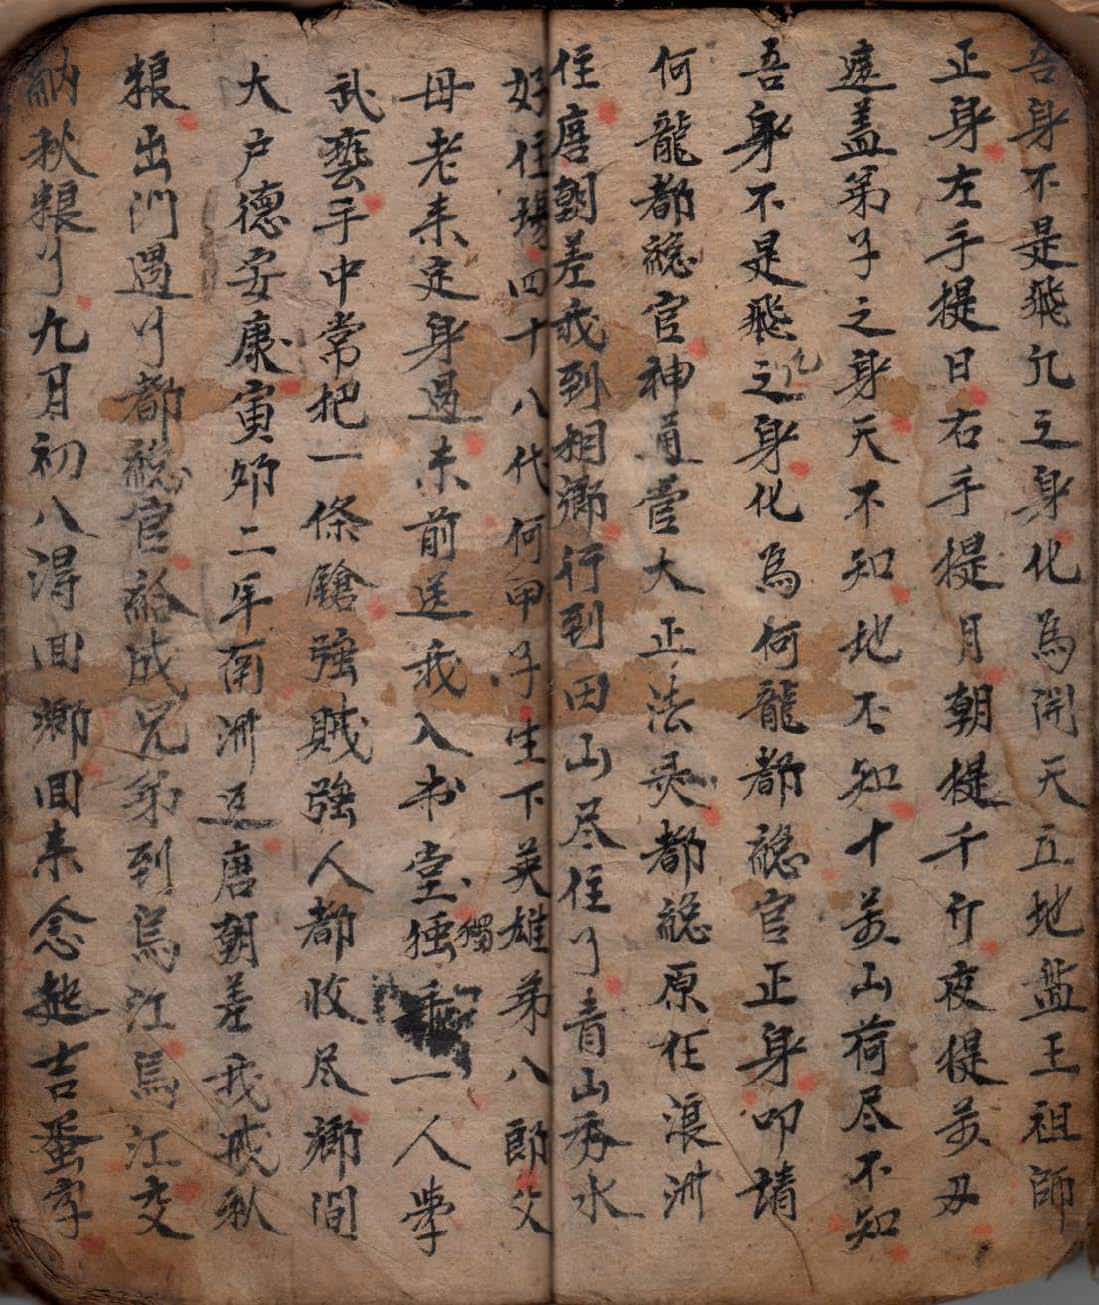 吾身不是飛凢之身化為開天立地盤王祖師
正身左手提日右手提月朝提千斤夜提万刃
遮盖弟子之身天不知地不知十万山荷尽不知
吾身不是飛凢之身化為何龍都総官正身叩請
何龍都総官神通管大正法灵都総原任浪洲
住唐朝差我到相鄉行到田山尽住了青山秀水
好住塲四十八代何甲子生下英雄弟八郎父
母老来定身過来前送我入书堂獨一人学
武藝手中常把一條鎗強賊強人都收尽鄉间
大户德安康寅卯二年南洲返唐朝差我戒秋
粮出門遇了都総官給成兄弟到烏江烏江交
納秋粮了九月初八得回鄉回来念起吉蛋字